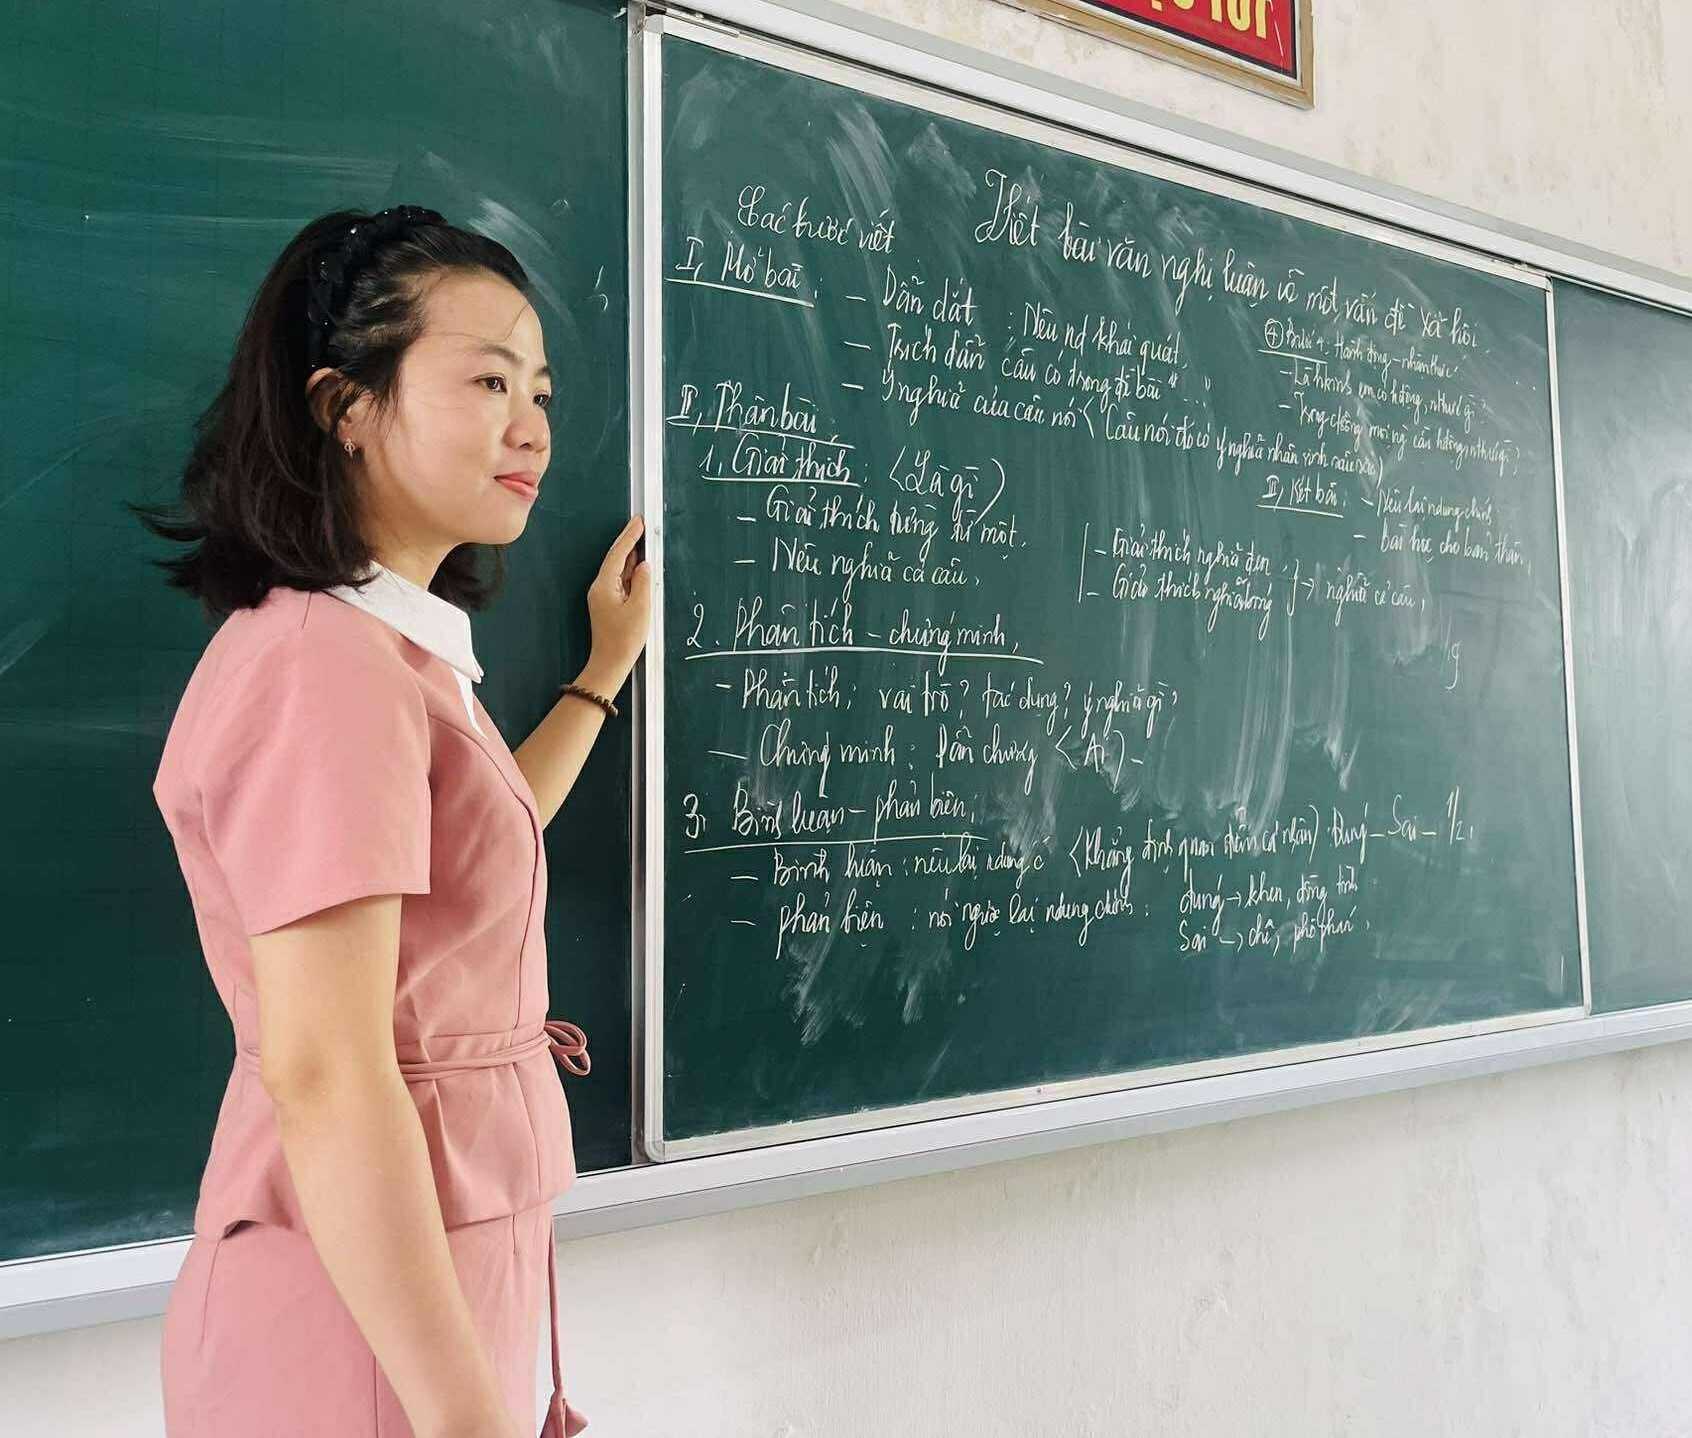 Viết bài văn nghị luận về một vấn đề xã hội.
Các bước viết
I, Mở bài:
- Dẫn dắt : Nêu nd khái quát.
- Trích dẫn câu có trong đề bài " "
- Ý nghĩa của câu nói < Câu nói đó có ý nghĩa nhân sinh sâu sắc)
II, Thân bài:
1, Giải thích : <Là gì)
- Giải thích từng từ một.
- Nêu nghĩa cả câu,
- Giải thích nghĩa đen
- Giải thích nghĩa bóng } → nghĩa cả câu,
2. Phân tích - chứng minh,
- Phân tích: vai trò? tác dụng? ý nghĩa gì?
- Chứng minh : Dẫn chứng <Ai) -
3, Bình luận - phản biện,
- Bình luận : nêu lại ndung c <Khẳng định quan điểm cá nhân) : đúng - Sai - 1/2,
- phản biện : nói ngược lại ndung chính : đúng → khen, đồng tình
Sai → chê, phê phán,
④ Bước 4: Hành động - nhận thức
- Là h/sinh em có h động, nthức gì?
- Trong cộng mọi ng cần h động nthức gì?
III, Kết bài: - Nêu lại ndung chính
- bài học cho bản thân,